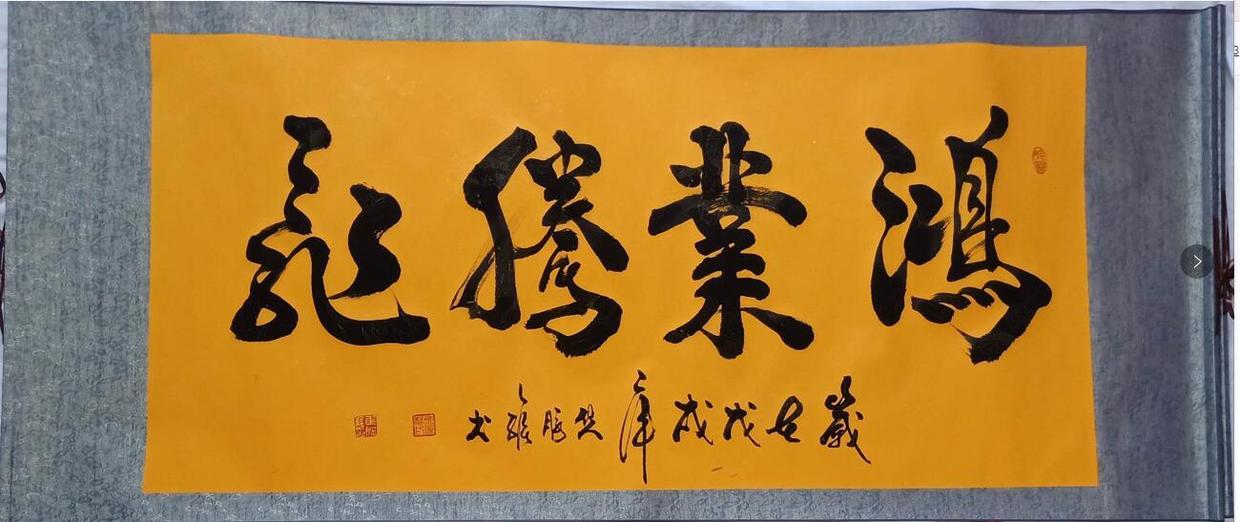 鴻業騰龍
歲在戊戌年